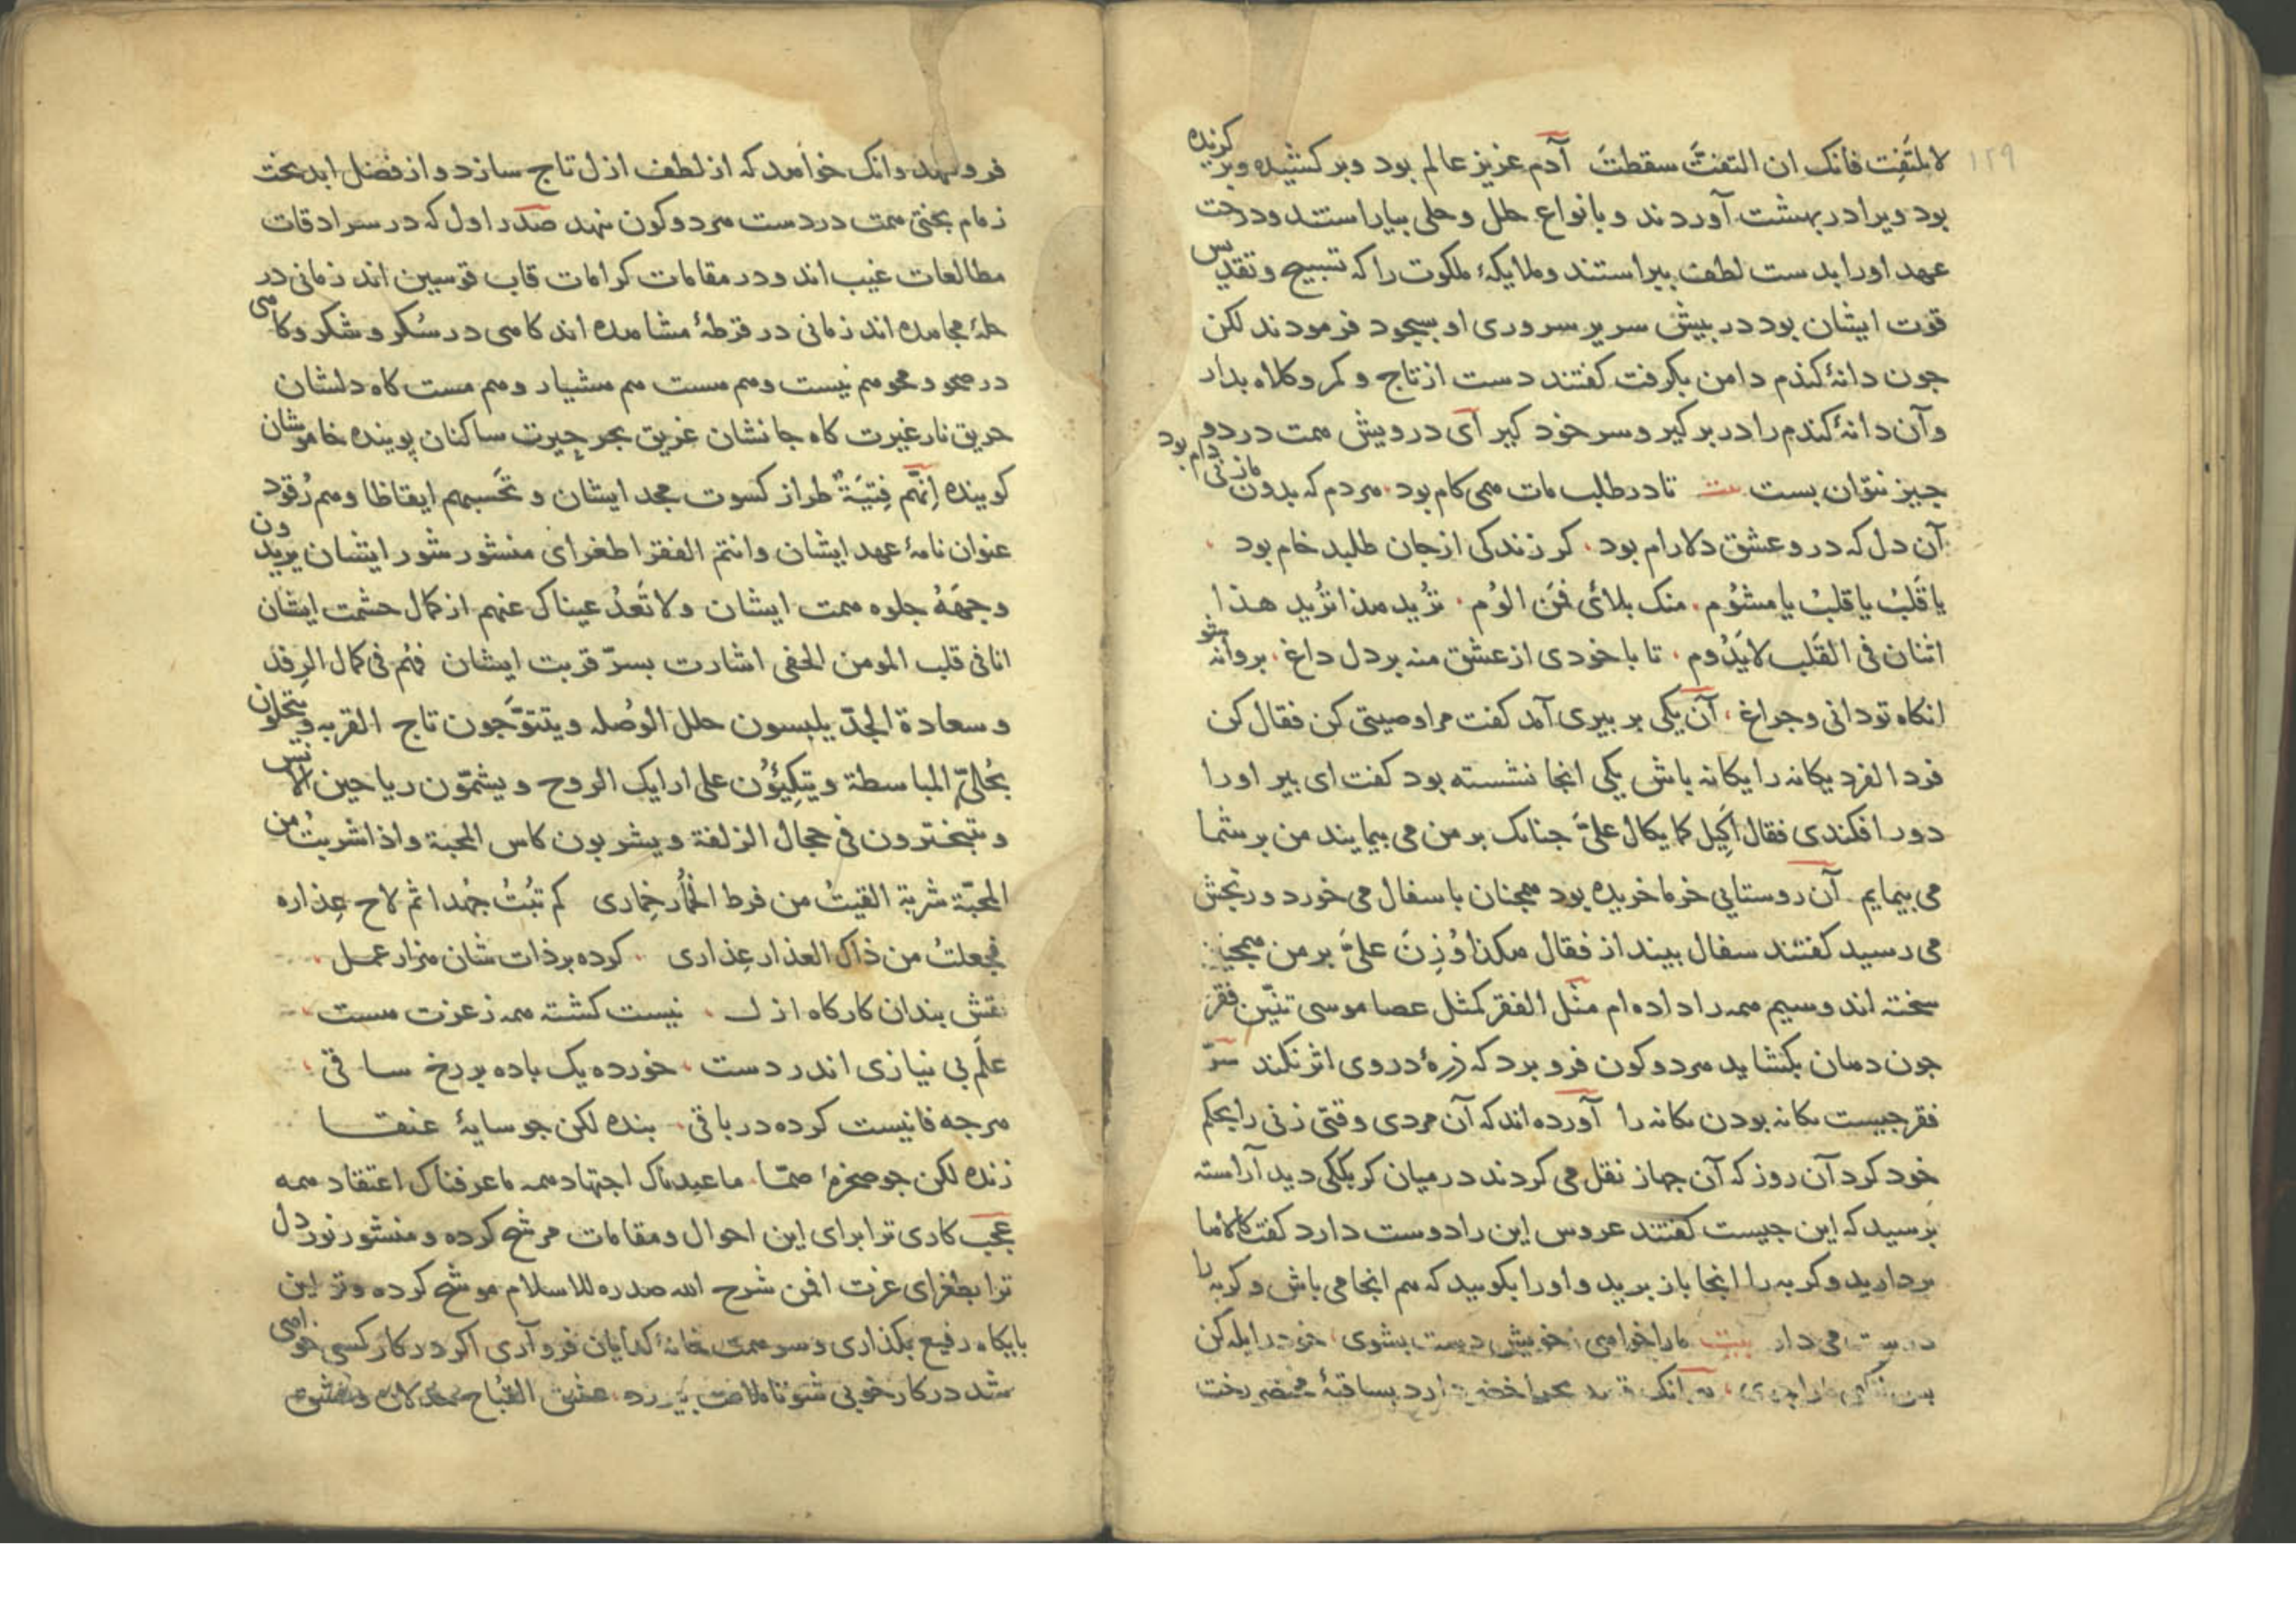 ١٢٩
لا تلتفِت فانک ان التفتَّ سقطتَ آدم عزیز عالم بود وبر کشیده وبر کزیده
بود ویرا در بهشت آوردند و بانواع حلل و حلی بیاراستند و درخت
عهد اورا بدست لطف بپیراستند و ملایکهٔ ملکوت را که تسبیح و تقدیس
قوت ایشان بود در پیش سریر سروری او بسجود فرمودند لکن
جون دانهٔ کندم دامن بکرفت کفتند دست از تاج و کمر و کلاه بدار
وآن دانهٔ کندم را در بر کیر و سر خود کیر آی درویش همت در دو
جیز نتوان بست بیت تا در طلب مات همی کام بود مردم که بدون ما زنی دام بود
آن دل که درو عشق دلارام بود کر زندکی از جان طلبد خام بود
یا قَلبُ یا قلبُ یا مشئوم منک بلائی فمَن الوُم تُرید هذا تُرید هذا
اثنان فی القَلب لا یَدُوم تا با خودی از عشق منه بر دل داغ پروانه شو
انکاه تو دانی و جراغ آن یکی بر پیری آمد کفت مرا وصیتی کن فقال کن
فردا لفرد یکانه را یکانه باش یکی انجا نشسته بود کفت ای پیر اورا
دور افکندی فقال اَکِیل کما یکال علیَّ جنانک بر من می پیمایند من بر شما
می پیمایم آن روستایی خرما خریده بود همجنان با سفال می خورد و رنجش
می رسید کفتند سفال بینداز فقال هکذا وُزِنَ علیَّ بر من همجنین
سخته اند و سیم همه را داده ام مَثل الفقر کمثل عصا موسی تنّین فقر
جون دهان بکشاید هر دو کون فرو برد که ذرهٔ در وی اثر نکند سرّ
فقر جیست یکانه بودن یکانه را آورده اند که آن مردی وقتی زنی را بحکم
خود کرد آن روز که آن جهاز نقل می کردند در میان کربککی دید آراسته
پرسید که این جیست کفتند عروس این را دوست دارد کفت کالاها
بردارید و کربه را انجا باز برید و اورا بکویید که هم انجا می باش و کربه را
دوست می دار بیت مارا خواهی زخویش دست بشوی خود را یله کن
پس
فرو نهد وانک خواهد که از لطف ازل تاج سازد و از فضل ابد تخت
زمام بختی همت در دست هر دو کون ننهد صدر اول که در سرادقات
مطالعات غیب اند و در مقامات کرامات قاب قوسین اند زمانی در
حلهٔ مجاهده اند زمانی در قرطهٔ مشاهده اند کاهی در سُکر و شکر و کاهی
در صحو و محو هم نیست و هم هست هم هشیار و هم مست کاه دلشان
حریق نار غیرت کاه جانشان غریق بحر حیرت ساکنان پوینده خاموشان
کوینده اِنّهُم فِتیَةٌ طراز کسوت مجد ایشان و تَحسبهم ایقاظا وهم رُقود
عنوان نامهٔ عهد ایشان وانتم الفقرا طغرای منشور شور ایشان یریدون
وجهَهُ جلوه همت ایشان ولا تَعدُ عیناک عنهم از کمال حشمت ایشان
انا فی قلب المومن الحفی اشارت بسرّ قربت ایشان فهُم فی کمال الرِفد
و سعادة الجدّ یلبسون حلل الوُصله ویتتوَّجون تاج القربه ویتحلّون
بحُلیّ المباسطة ویتکِیؤُن علی ارایک الروح ویشمّون ریاحین الانس
و یتبخترون فی حجال الزلفة ویشربون کاس المحبة واذا شربتُ من
المحبّة شربة القیتُ من فرط الخُمار خِماری کم تُبتُ جُهدا ثم لاح عِذاره
فجعلتُ من ذاک العذار عِذاری کرده بر ذات شان هزار عمل
نقش بندان کارکاه ازل نیست کشته همه ز عزت هست
علَم بی نیازی اندر دست خورده یک باده بر رخ ساقی
هر جه فانیست کرده در باقی بنده لکن جو سایهٔ عنقا
زنده لکن جو صخرهٔ صمّا ما عبدناک اجتهاد همه ما عرفناک اعتقاد همه
عجب کاری ترا برای این احوال و مقامات مرشح کرده و منشور نور دل
ترا بطغرای عزت افمن شرح الله صدره للاسلام موشح کرده وتو این
بایکاه رفیع بکذاری و سر همت بخانهٔ کدایان فرو آری اکر در کار کسی خواهی
شد در کار خوبی شو تا ملامت